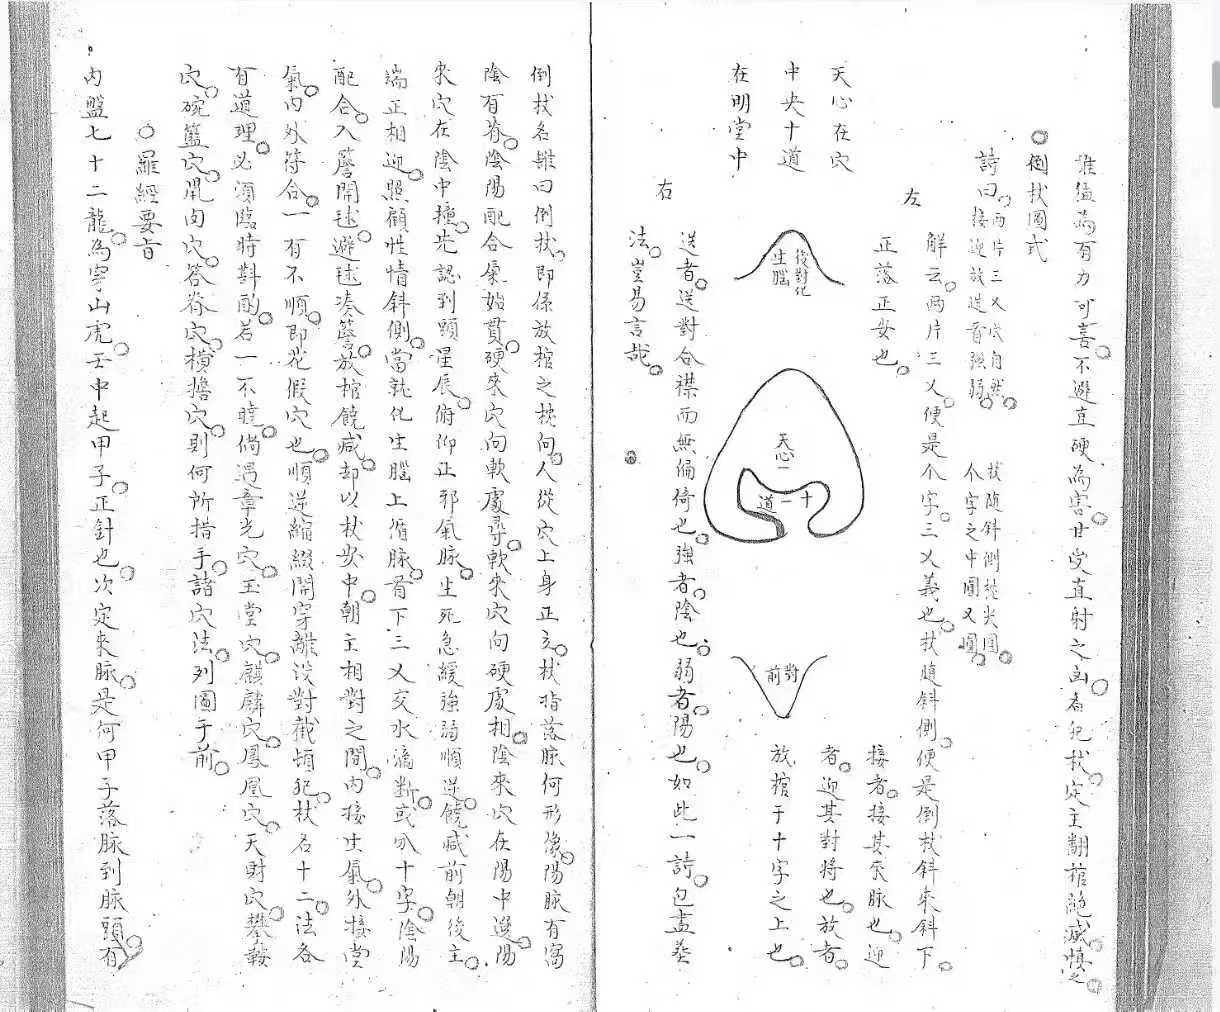 惟猛為有力可喜。不避直硬為害。甘受直射之凶者犯杖。定主翻棺絕滅。慎之。
○倒杖圖式
詩曰。兩片三叉出自然。杖隨斜側從尖圓。
接迎放送看強弱。个字之中圓又圓。
解云。兩片三叉。便是个字。三叉義也。杖隨斜側。便是倒杖斜來斜下。
正落正安也。
左
接者。接其來脉也。迎
者。迎其對將也。放者。
放棺于十字之上也。
天心在穴
中央十道
在明堂中
後對化
生腦
天心一
十一道
對前
右
送者。送對合襟而無偏倚也。強者。陰也。弱者。陽也。如此一詩。包盡葬
法。豈易言哉。
倒杖名雖曰倒杖。即係放棺之枕向。人從穴上身正立。杖指落脉何形像。陽脉有窩
陰有脊。陰陽配合氣始貫。硬來穴向軟處尋。軟來穴向硬處相。陰來穴在陽中邊。陽
來穴在陰中撞。先認到頭星辰。俯仰正邪氣脉。生死急緩強弱順逆。饒减前朝後主。
端正相迎。照顧性情斜側。當就化生腦上循脉。看下三叉交水滴斷。或分十字。陰陽
配合。入簷開毬。避毬凑簷。放棺饒减。却以杖安中。朝主相對之間。內接生氣。外接堂
氣。內外符合。一有不順。即花假穴也。順逆縮綴開穿離沒對截頓犯。杖名十二。法各
有道理。必須臨時斟酌。若一一不曉。倘遇章光穴。玉堂穴。麒麟穴。鳳凰穴。天財穴。攀鞍
穴。碗籃穴。凧肉穴。答脊穴。橫擔穴。則何所措手。諸穴法。列圖于前。
○羅經要旨
內盤七十二龍。為穿山虎。壬中起甲子。正針也。次定來脉。是何甲子落脉到脉頭。有